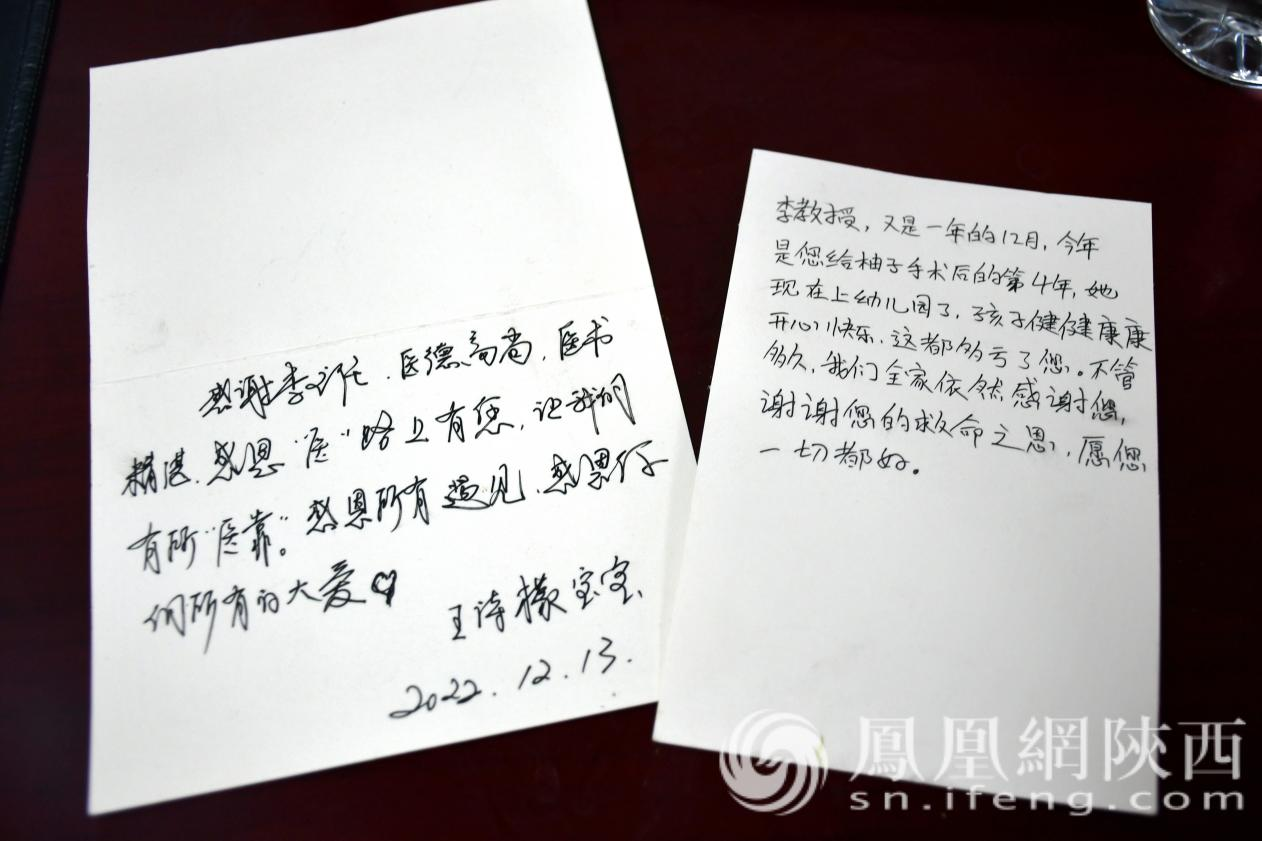 感谢李主任、医德高尚、医书
精湛、感恩"医"路上有您,让我们
有所"医靠"。感恩所有遇见、感恩你
们所有的大爱♡
王诗檬宝宝、
2022.12.13.
李教授,又是一年的12月,今年
是您给柚子手术后的第4年,她
现在上幼儿园了,孩子健健康康
开心快乐,这都多亏了您。不管
多久,我们全家依然感谢您,
谢谢您的救命之恩,愿您
一切都好。
鳳凰網陝西
sn.ifeng.com